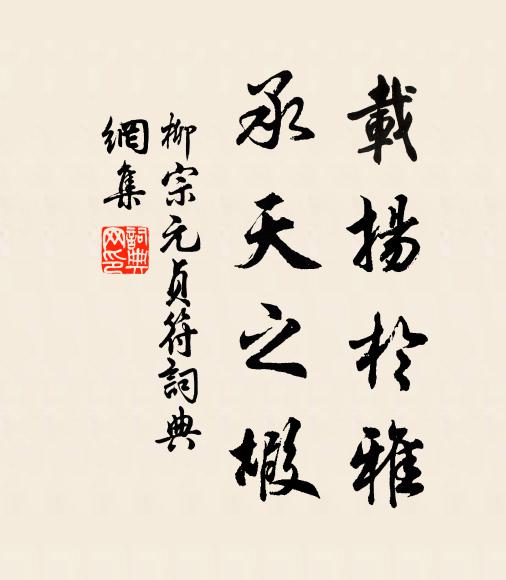 載揚於雅
承天之椴
柳宗元貞符詞典
網集
詞典
网印